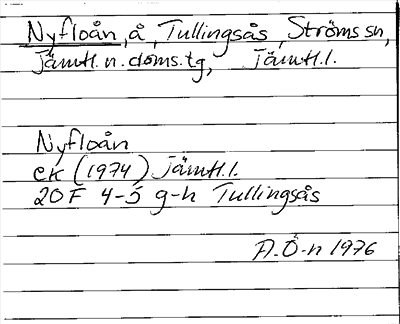 Nyfloån, å, Tullingsås, Ströms sn,
Jämtl. n. doms.tg, Jämtl.l.
Nyfloån
ek (1974) Jämtl.l.
20F 4-5 g-h Tullingsås
A.Ö-n 1976